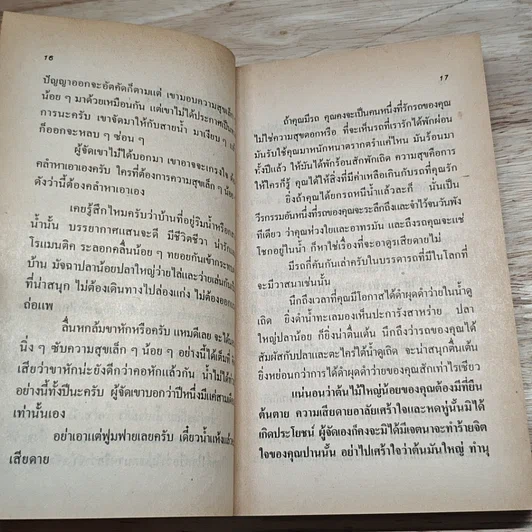 16
ปัญญาออกจะอัตคัดก็ตามแต่ เขามอบความสุขเล็ก
น้อย ๆ มาด้วยเหมือนกัน แต่เขาไม่ได้ประกาศเป็น
การนะครับ เขาจัดมาให้กับสายน้ำ มาเงียบ ๆ
ก็ออกจะหลบ ๆ ซ่อน ๆ
ผู้จัดเขาไม่ได้บอกมา เขาอาจจะเกรงใจ
คลำหาเอาเองครับ ใครที่ต้องการความสุขเล็ก ๆ น้อย
ดังว่านี้ต้องคลำหาเอาเอง
เคยรู้สึกไหมครับว่าบ้านที่อยู่ริมน้ำหรือ
น้ำนั้น บรรยากาศแสนจะดี มีชีวิตชีวา น่ารัก
โรแมนติค ระลอกคลื่นน้อย ๆ ทยอยกันเข้ากระทบ
บ้าน มัจฉาปลาน้อยปลาใหญ่ว่ายไล่และว่ายเล่นกัน
ที่น่าสนุก ไม่ต้องเดินทางไปล่องแก่ง ไม่ต้องออก
ถ่อแพ
ลื่นหกล้มขาหักหรือครับ แหมดีเลย จะได้
นิ่ง ๆ ซับความสุขเล็ก ๆ น้อย ๆ อย่างนี้ได้เต็มที่
เสียว่าขาหักน่ะยังดีกว่าคอหักแล้วกัน น้ำไม่ได้ท่
อย่างนี้ทั้งปีนะครับ ผู้จัดเขาบอกว่าปีหนึ่งมีแค่สามเดือน
เท่านั้นเอง
อย่าเอาแต่ฟูมฟายเลยครับ เดี๋ยวน้ำแห้งแล้ว
เสียดาย
17
ถ้าคุณมีรถ คุณคงจะเป็นคนหนึ่งที่รักรถของคุณ
ไม่ใช่ความสุขดอกหรือ ที่จะเห็นรถที่เรารักได้พักผ่อน
มันรับใช้คุณมาหนักหนาตรากตรำแค่ไหน มันร้อนมา
ทั้งปีแล้ว ให้มันได้พักร้อนสักพักเถิด ความสุขคือการ
ให้ใครก็รู้ คุณได้ให้สิ่งที่มีค่าเหลือเกินกับรถที่คุณรัก
ยิ่งถ้าคุณได้ยกรถหนีน้ำแล้วละก็ นั่นเป็น
วีรกรรมอันหนึ่งที่รถของคุณจะระลึกถึงและจำไว้จนวันพัง
ทีเดียว ว่าคุณห่วงใยและอาทรมัน และถึงรถคุณจะแช่
โชกอยู่ในน้ำ ก็หาใช่เรื่องที่จะอาดูรเสียดายไม่
มีรถกี่คันกันเล่าครับในบรรดารถที่มีในโลกที่
จะมีวาสนาเช่นนั้น
นึกถึงเวลาที่คุณมีโอกาสได้ดำผุดดำว่ายในน้ำดู
เถิด ยิ่งดำน้ำทะเลมองเห็นปะการังสาหร่าย ปลา
ใหญ่ปลาน้อย ก็ยิ่งน่าตื่นเต้น นึกถึงว่ารถของคุณได้
สัมผัสกับปลาและตะไคร่ใต้น้ำดูเถิด จะน่าสนุกตื่นเต้น
ยิ่งหย่อนกว่าการได้ดำผุดดำว่ายของคุณสักเท่าไรเชียว
แน่นอนว่าต้นไม้ใหญ่น้อยของคุณต้องมีที่ยืน
ต้นตาย ความเสียดายอาลัยเศร้าใจและหดหู่นั้นมิได้
เกิดประโยชน์ ผู้จัดเองก็คงจะมิได้มีเจตนาจะทำร้ายจิต
ใจของคุณปานนั้น อย่าไปเศร้าใจว่าต้นมันใหญ่ ทำนุ